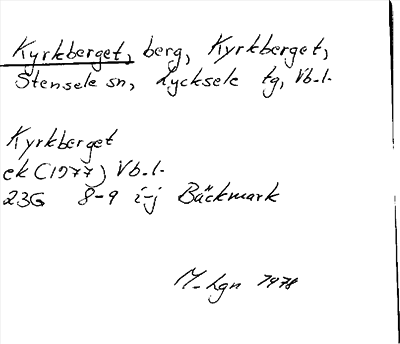 Kyrkberget, berg, Kyrkberget,
Stensele sn, Lycksele tg, Vb.l.
Kyrkberget
ek (1977) Vb.l.
23G 8-9 i-j Bäckmark
M-Lgn 1978